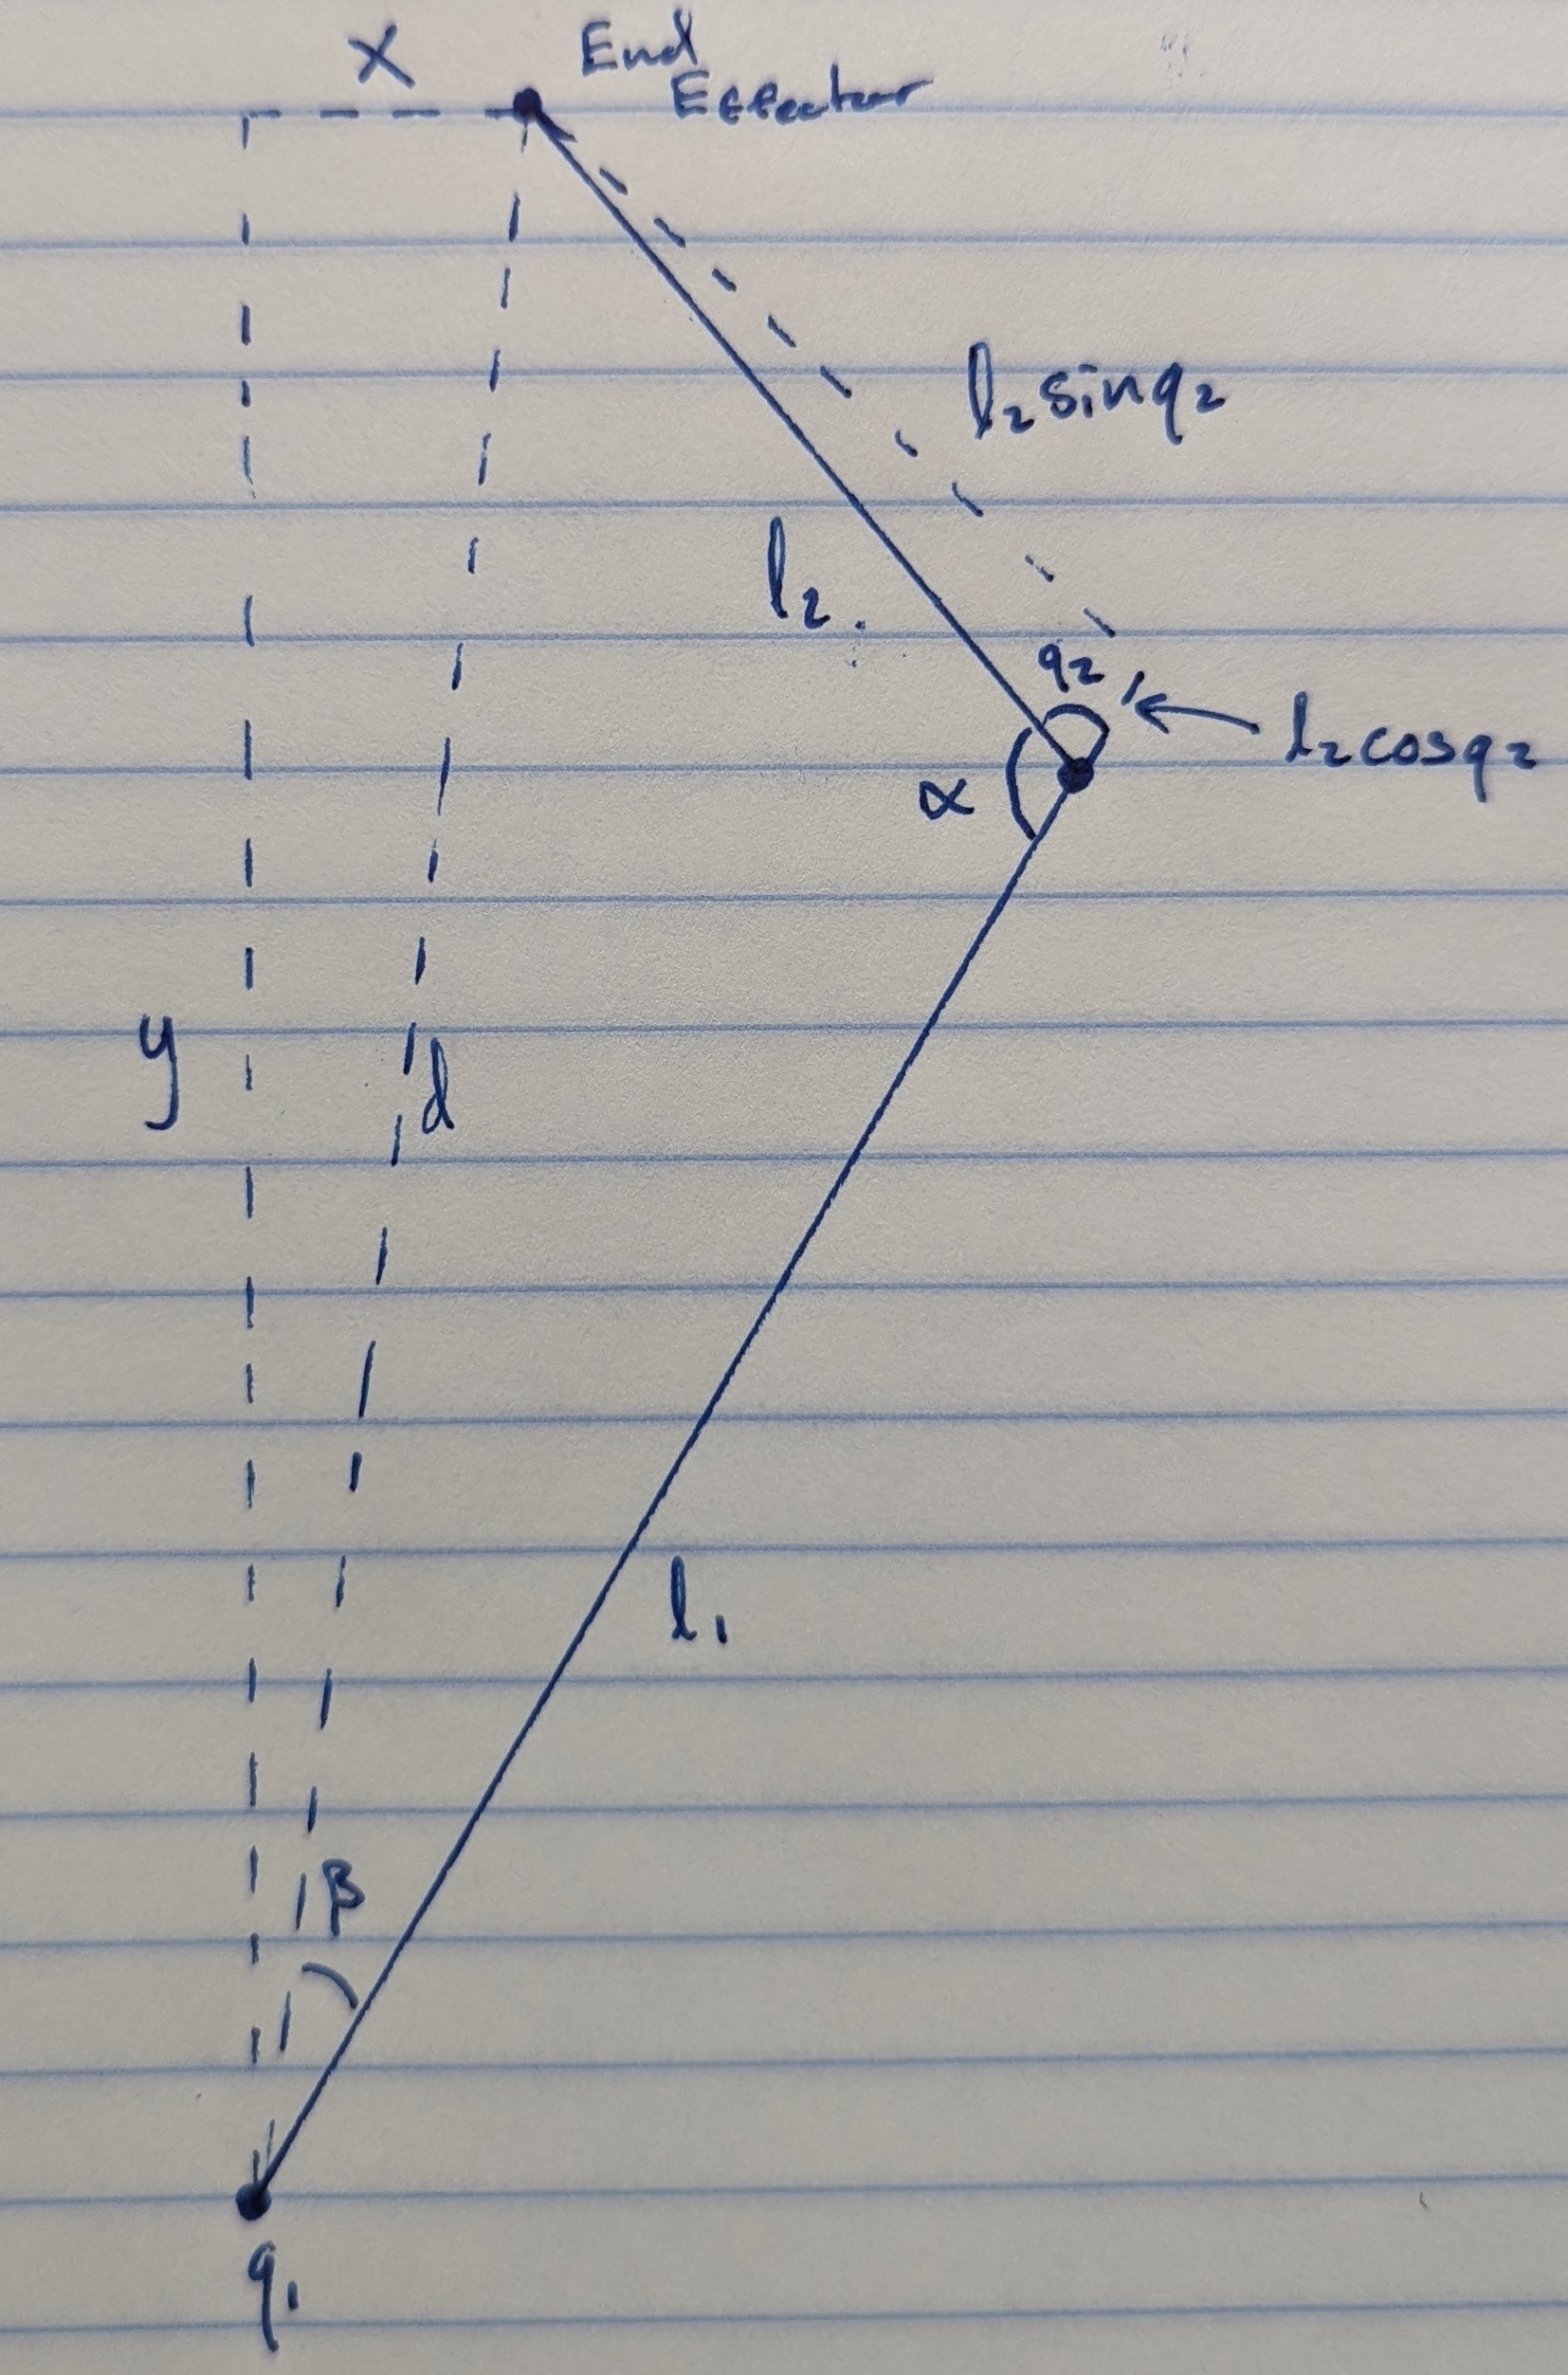 x
End
Effector
l₂ sin q₂
l₂
q₂
l₂ cos q₂
α
y
d
l₁
β
q₁